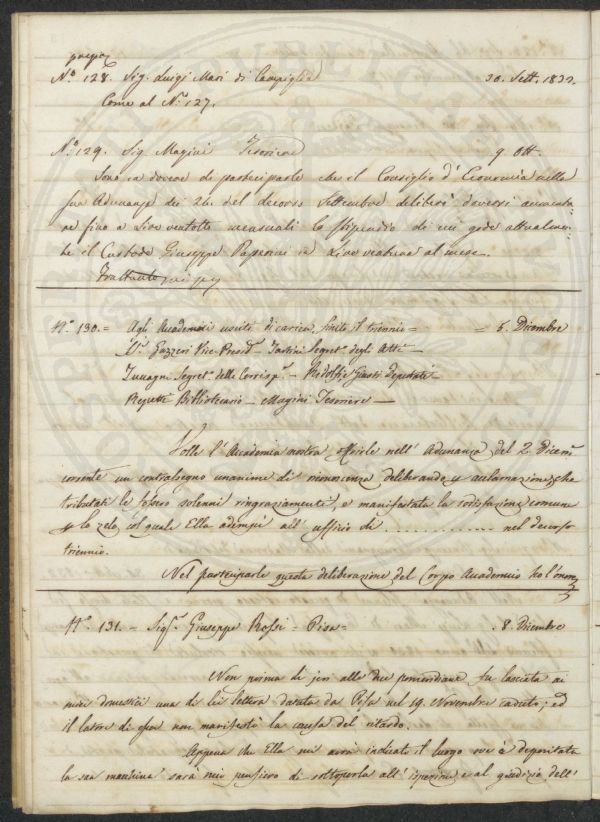 N.º 128. Sig. Luigi Mari di Campiglia 30. Sett. 1832.
Come al N.º 127.
N.º 129. Sig. Magini Tesoriere 9 Ott.
Sono in dovere di parteciparle che il Consiglio d'Economia nella
sua Adunanza dei 26. del decorso Settembre deliberò doversi aumenta-
re fino a Lire ventotto mensuali lo stipendio di cui gode attualmen-
te il Custode Giuseppe Paperini in Lire ventuna al mese.
Frattanto
N.º 130. = Agli Accademici usciti di carica, finito il triennio = = 5. Dicembre
S.r Gazzeri Vice-Presid.e - Tartini Segret.º degli Atti -
Inragni Segret.º delle Corrisp.e - Ridolfi, e Giusti deputati -
Repetti Bibliotecario - Magini Tesoriere -
Volle l'Accademia nostra offrirle nell'Adunanza del 2. Dicem.
corrente un contrassegno unanime di riconoscenza deliberando p acclamazione, che
tributati le fossero solenni ringraziamenti, e manifestata la sodisfazione comune
p lo zelo col quale Ella adempì all'uffizio di ............. nel decorso
triennio.
Nel parteciparle questa deliberazione del Corpo Accademico ho l'onore
N.º 131. - Sig.r Giuseppe Rossi - Pisa = . 8. Dicembre
Non prima di jeri alle due pomeridiane fu lasciata ai
miei domestici una di lei lettera datata da Pisa nel 19. Novembre caduto; ed
il latore di essa non manifestò la causa del ritardo.
Appena che Ella mi avrà indicato il luogo ove è depositata
la sua macchina sarà mio pensiero di sottoporla all'ispezione e al giudizio dell'